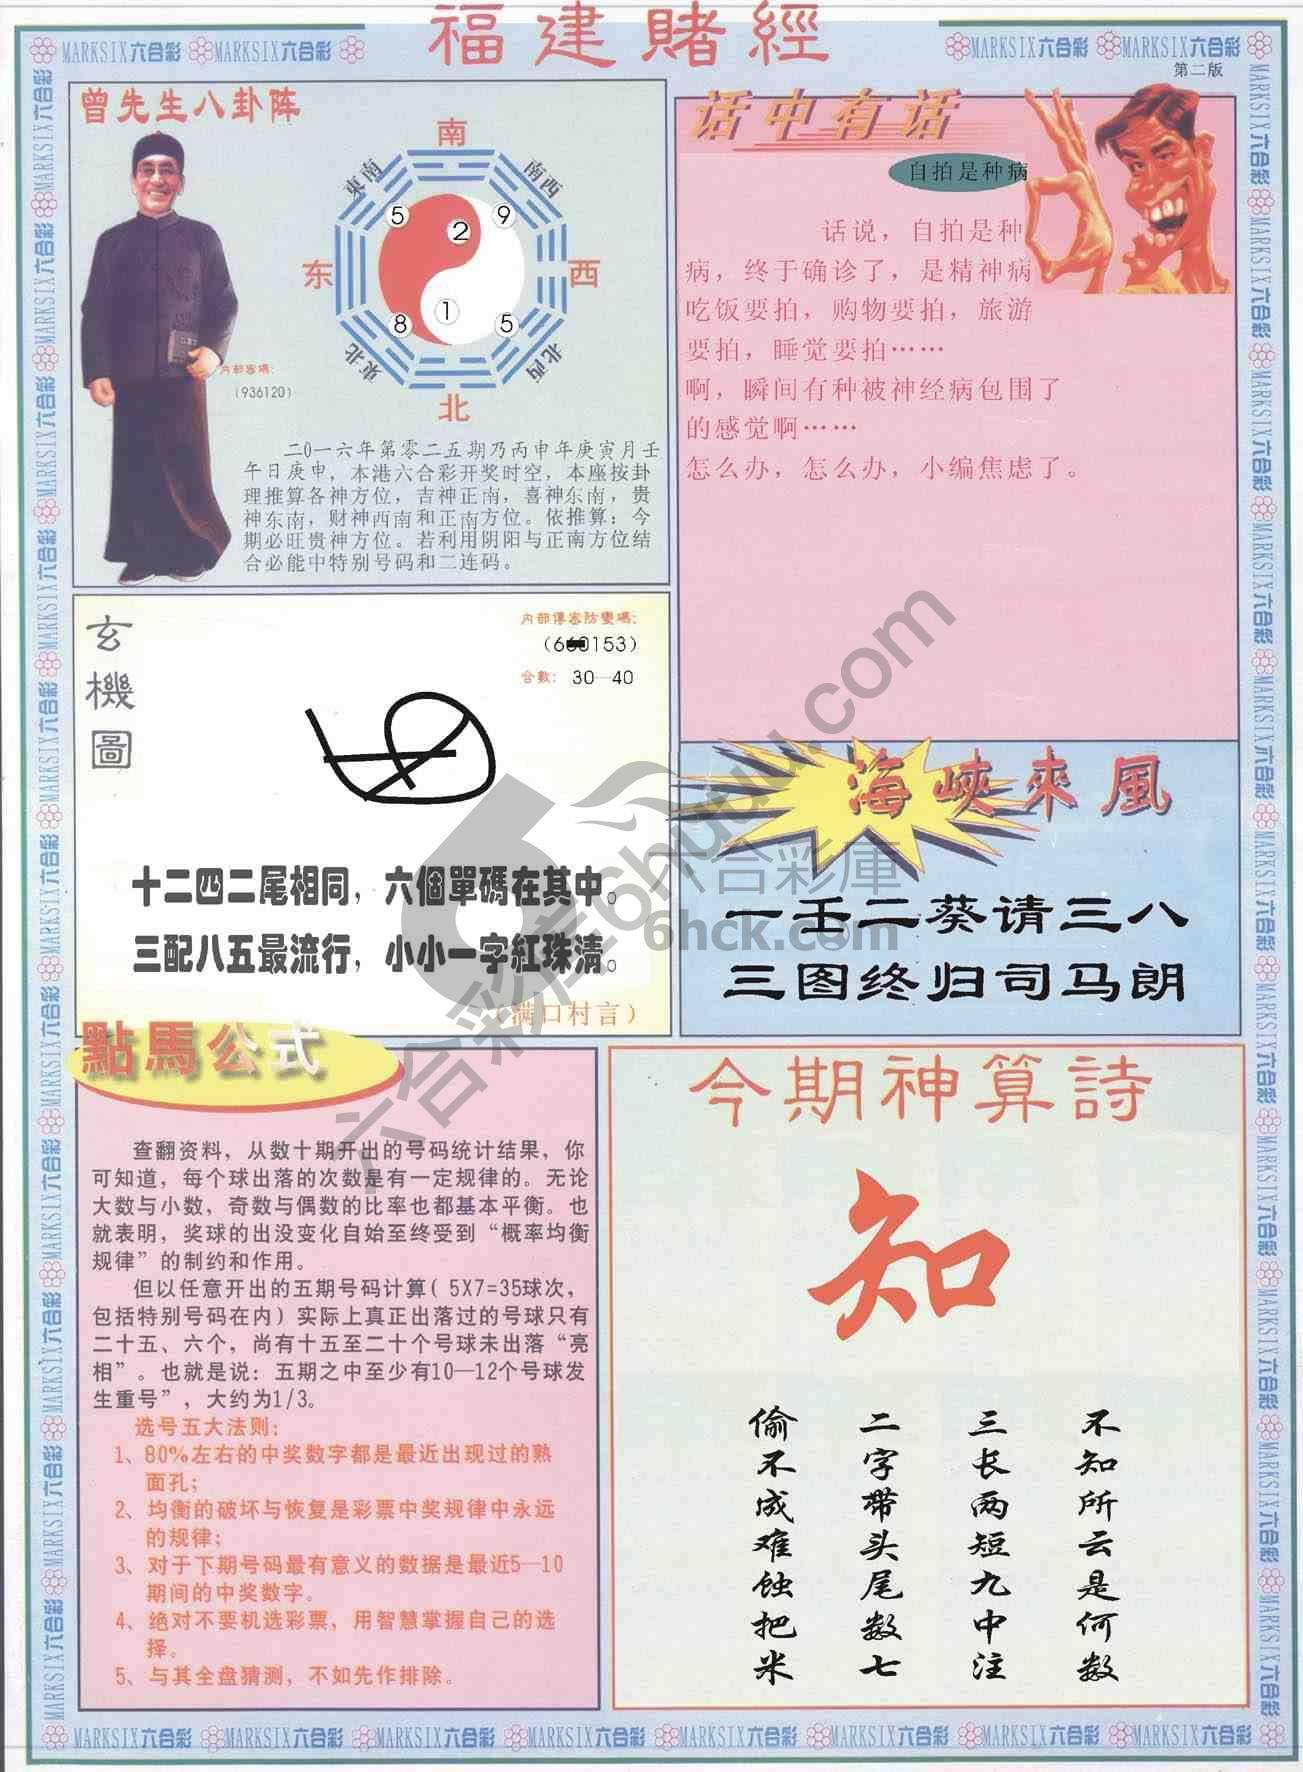 福建賭經
MARKSIX六合彩 MARKSIX六合彩
MARKSIX六合彩 MARKSIX六合彩
第二版
曾先生八卦阵
南
東南
南西
5
2
9
东
西
8
1
5
東北
北西
北
内部密碼:
(936120)
二0一六年第零二五期乃丙申年庚寅月壬
午日庚申，本港六合彩开奖时空，本座按卦
理推算各神方位，吉神正南，喜神东南，贵
神东南，财神西南和正南方位。依推算：今
期必旺贵神方位。若利用阴阳与正南方位结
合必能中特别号码和二连码。
话中有话
自拍是种病
话说，自拍是种
病，终于确诊了，是精神病
吃饭要拍，购物要拍，旅游
要拍，睡觉要拍……
啊，瞬间有种被神经病包围了
的感觉啊……
怎么办，怎么办，小编焦虑了。
玄機圖
内部傳密防變碼:
0153)
合數: 30—40
十二四二尾相同，六個單碼在其中。
三配八五最流行，小小一字紅珠清。
(满口村言)
海峽來風
一壬二葵请三八
三图终归司马朗
六合彩庫
6hck.com
六合彩库6htuku.com
點馬公式
查翻资料，从数十期开出的号码统计结果，你
可知道，每个球出落的次数是有一定规律的。无论
大数与小数，奇数与偶数的比率也都基本平衡。也
就表明，奖球的出没变化自始至终受到“概率均衡
规律”的制约和作用。
但以任意开出的五期号码计算( 5X7=35球次，
包括特别号码在内) 实际上真正出落过的号球只有
二十五、六个，尚有十五至二十个号球未出落“亮
相”。也就是说：五期之中至少有10—12个号球发
生重号”，大约为1/3。
选号五大法则:
1、80%左右的中奖数字都是最近出现过的熟
面孔;
2、均衡的破坏与恢复是彩票中奖规律中永远
的规律;
3、对于下期号码最有意义的数据是最近5—10
期间的中奖数字。
4、绝对不要机选彩票，用智慧掌握自己的选
择。
5、与其全盘猜测，不如先作排除。
今期神算詩
知
不知所云是何数
三长两短九中注
二字带头尾数七
偷不成难蚀把米
MARKSIX六合彩 MARKSIX六合彩 MARKSIX六合彩 MARKSIX六合彩 MARKSIX六合彩 MARKSIX六合彩 MARKSIX六合彩 MARKSIX六合彩